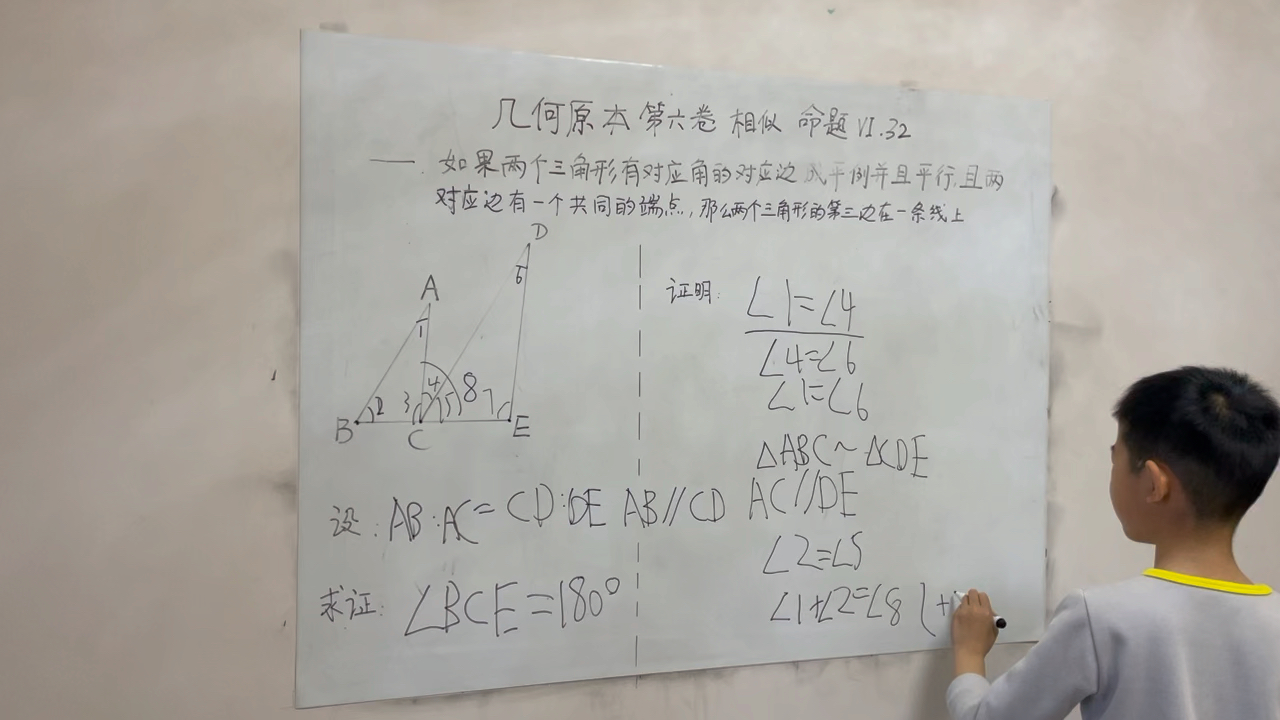 几何原本 第六卷 相似 命题 VI.32
—— 如果两个三角形有对应角的对应边成平例并且平行,且两
对应边有一个共同的端点,那么两个三角形的第三边在一条线上
D
6
A
1
4
2
3
5
8
7
B
C
E
设: AB:AC=CD:DE AB//CD AC//DE
求证: ∠BCE=180°
证明: ∠1=∠4
∠4=∠6
∠1=∠6
△ABC~△CDE
∠2=∠5
∠1+∠2=∠8 (+